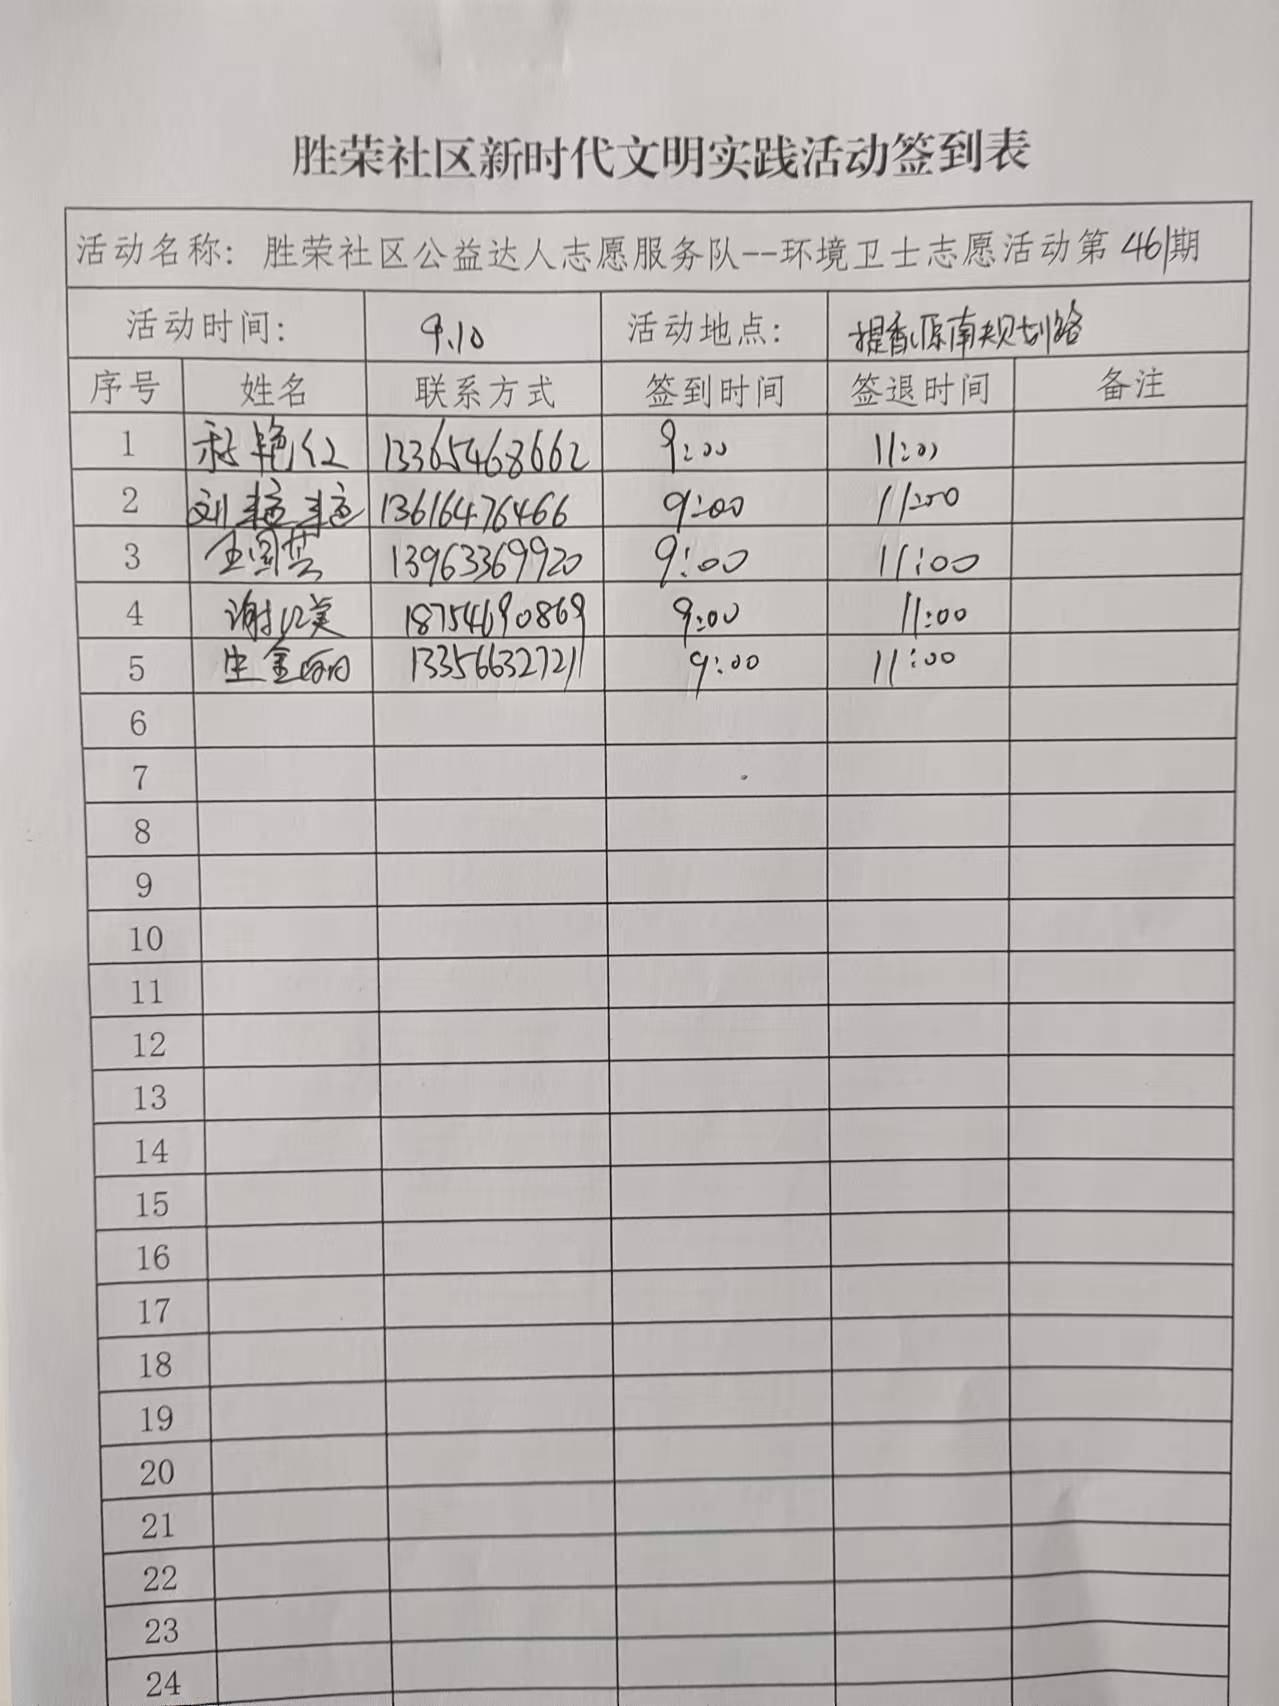 胜荣社区新时代文明实践活动签到表
活动名称：胜荣社区公益达人志愿服务队--环境卫士志愿活动第461期
活动时间： 9.10 活动地点： 提香源南规划路
序号 姓名 联系方式 签到时间 签退时间 备注
1 艳红 13365468662 9:00 11:00
2 刘 13616476466 9:00 11:00
3 王国英 13963369920 9:00 11:00
4 谢汉美 18754690869 9:00 11:00
5 生金丽 13356632721 9:00 11:00
6
7
8
9
10
11
12
13
14
15
16
17
18
19
20
21
22
23
24